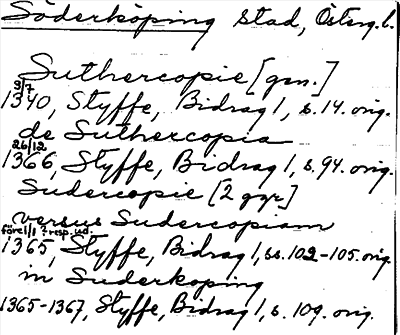 Söderköping stad, Österg. l.
Suthercopie [gen.]
9/7
1340, Styffe, Bidrag 1, s. 14. orig.
de Suthercopia
26/12
1366, Styffe, Bidrag 1, s. 94. orig.
Sudercopie [2 ggr]
versus Sudercopiam
före 1/1 ? resp. ud.
1365, Styffe, Bidrag 1, ss. 102-105. orig.
in Suderkoping
1365-1367, Styffe, Bidrag 1, s. 109. orig.